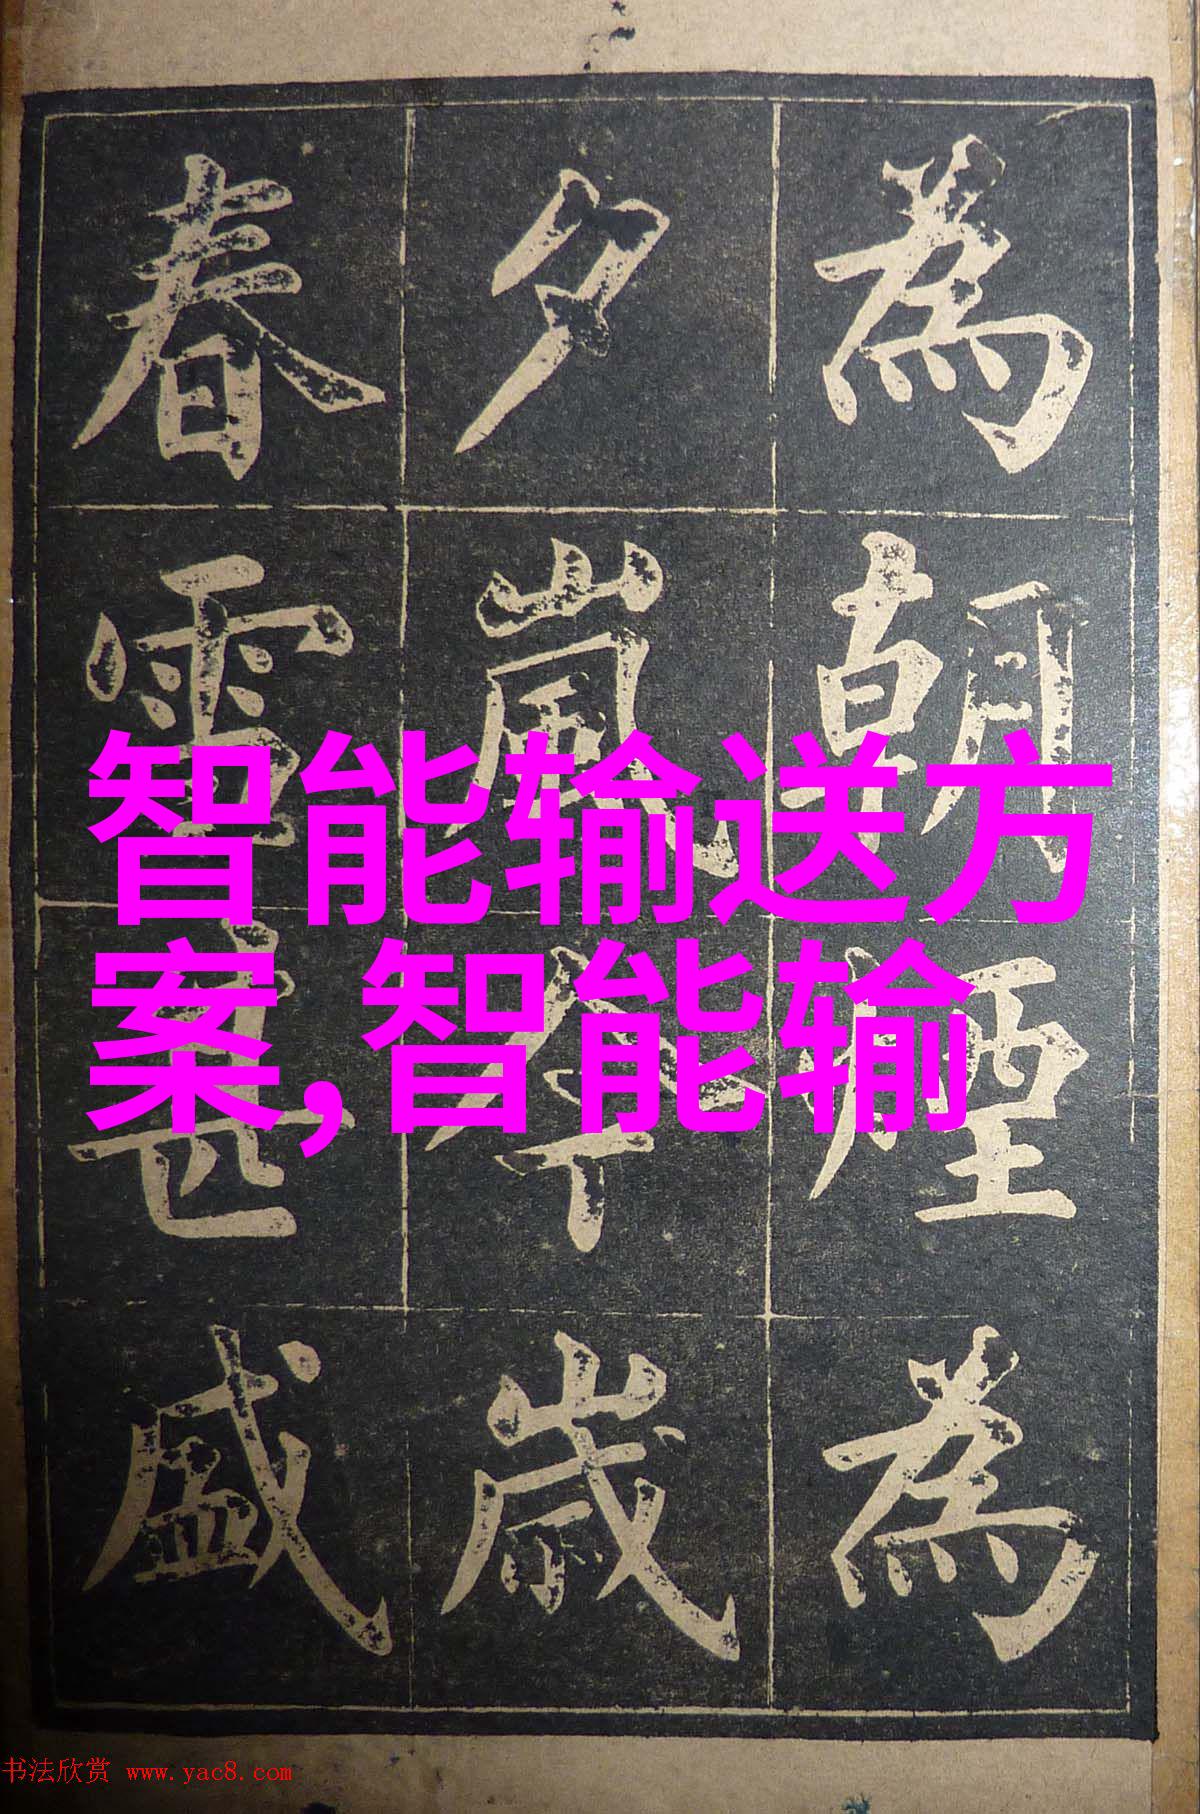 為朝煙為
夕嵐今歲
春雪甚盛
智能输送方
案,智能输
书法欣赏 www.yac8.com